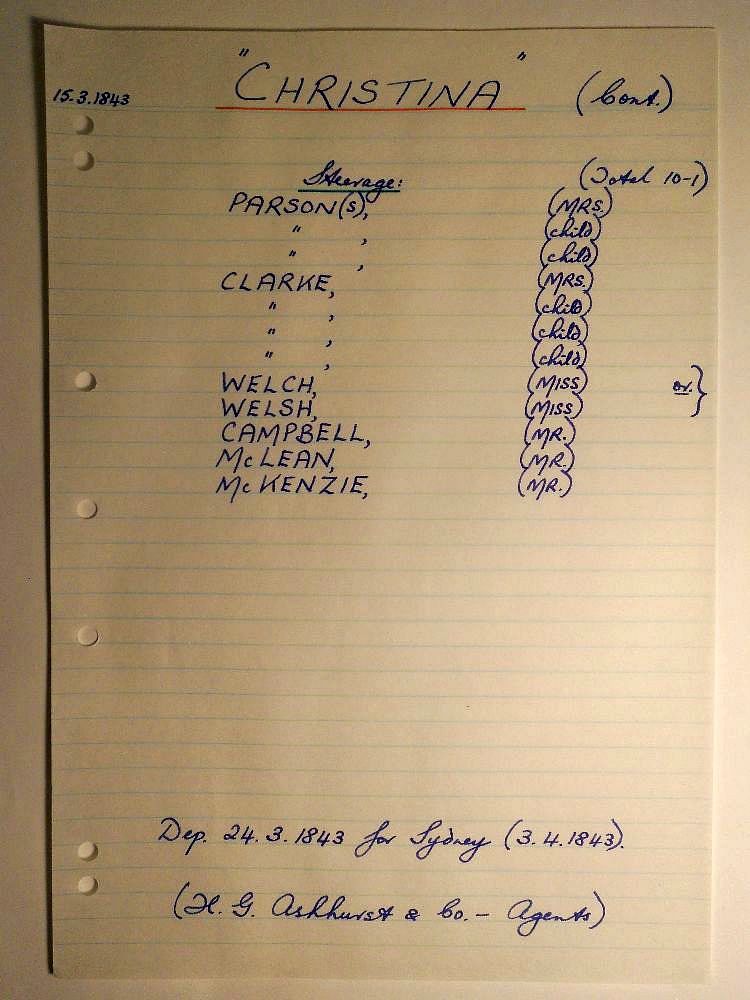 "CHRISTINA" (Cont.)
15.3.1843
Steerage: (Total 10-1)
PARSON(S), (MRS.)
" , (child)
" , (child)
CLARKE, (MRS.)
" , (child)
" , (child)
" , (child)
WELCH, (MISS) or. }
WELSH, (MISS)
CAMPBELL, (MR.)
McLEAN, (MR.)
McKENZIE, (MR.)
Dep. 24.3.1843 for Sydney (3.4.1843).
(H. G. Ashhurst & Co. - Agents)